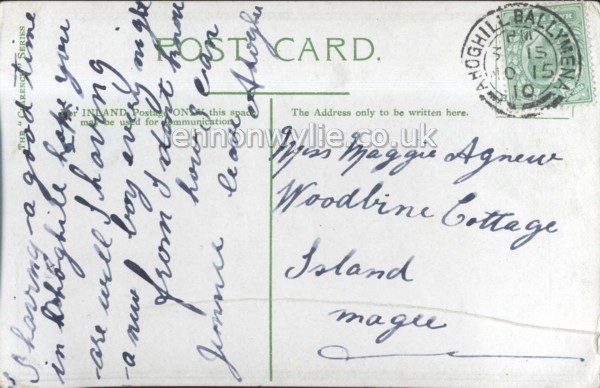 POST CARD.
THE "CLARENCE" SERIES
For INLAND Postage ONLY this space
may be used for communication.
The Address only to be written here.
AHOGHILL BALLYMENA
PM
15
10
lennonwylie.co.uk
I having a good time
in Ahoghile hope you
are will I having
a new boy every night
from I dont now
how I can
Jennie leave Ahoghi
Miss Maggie Agnew
Woodbine Cottage
Island
magee